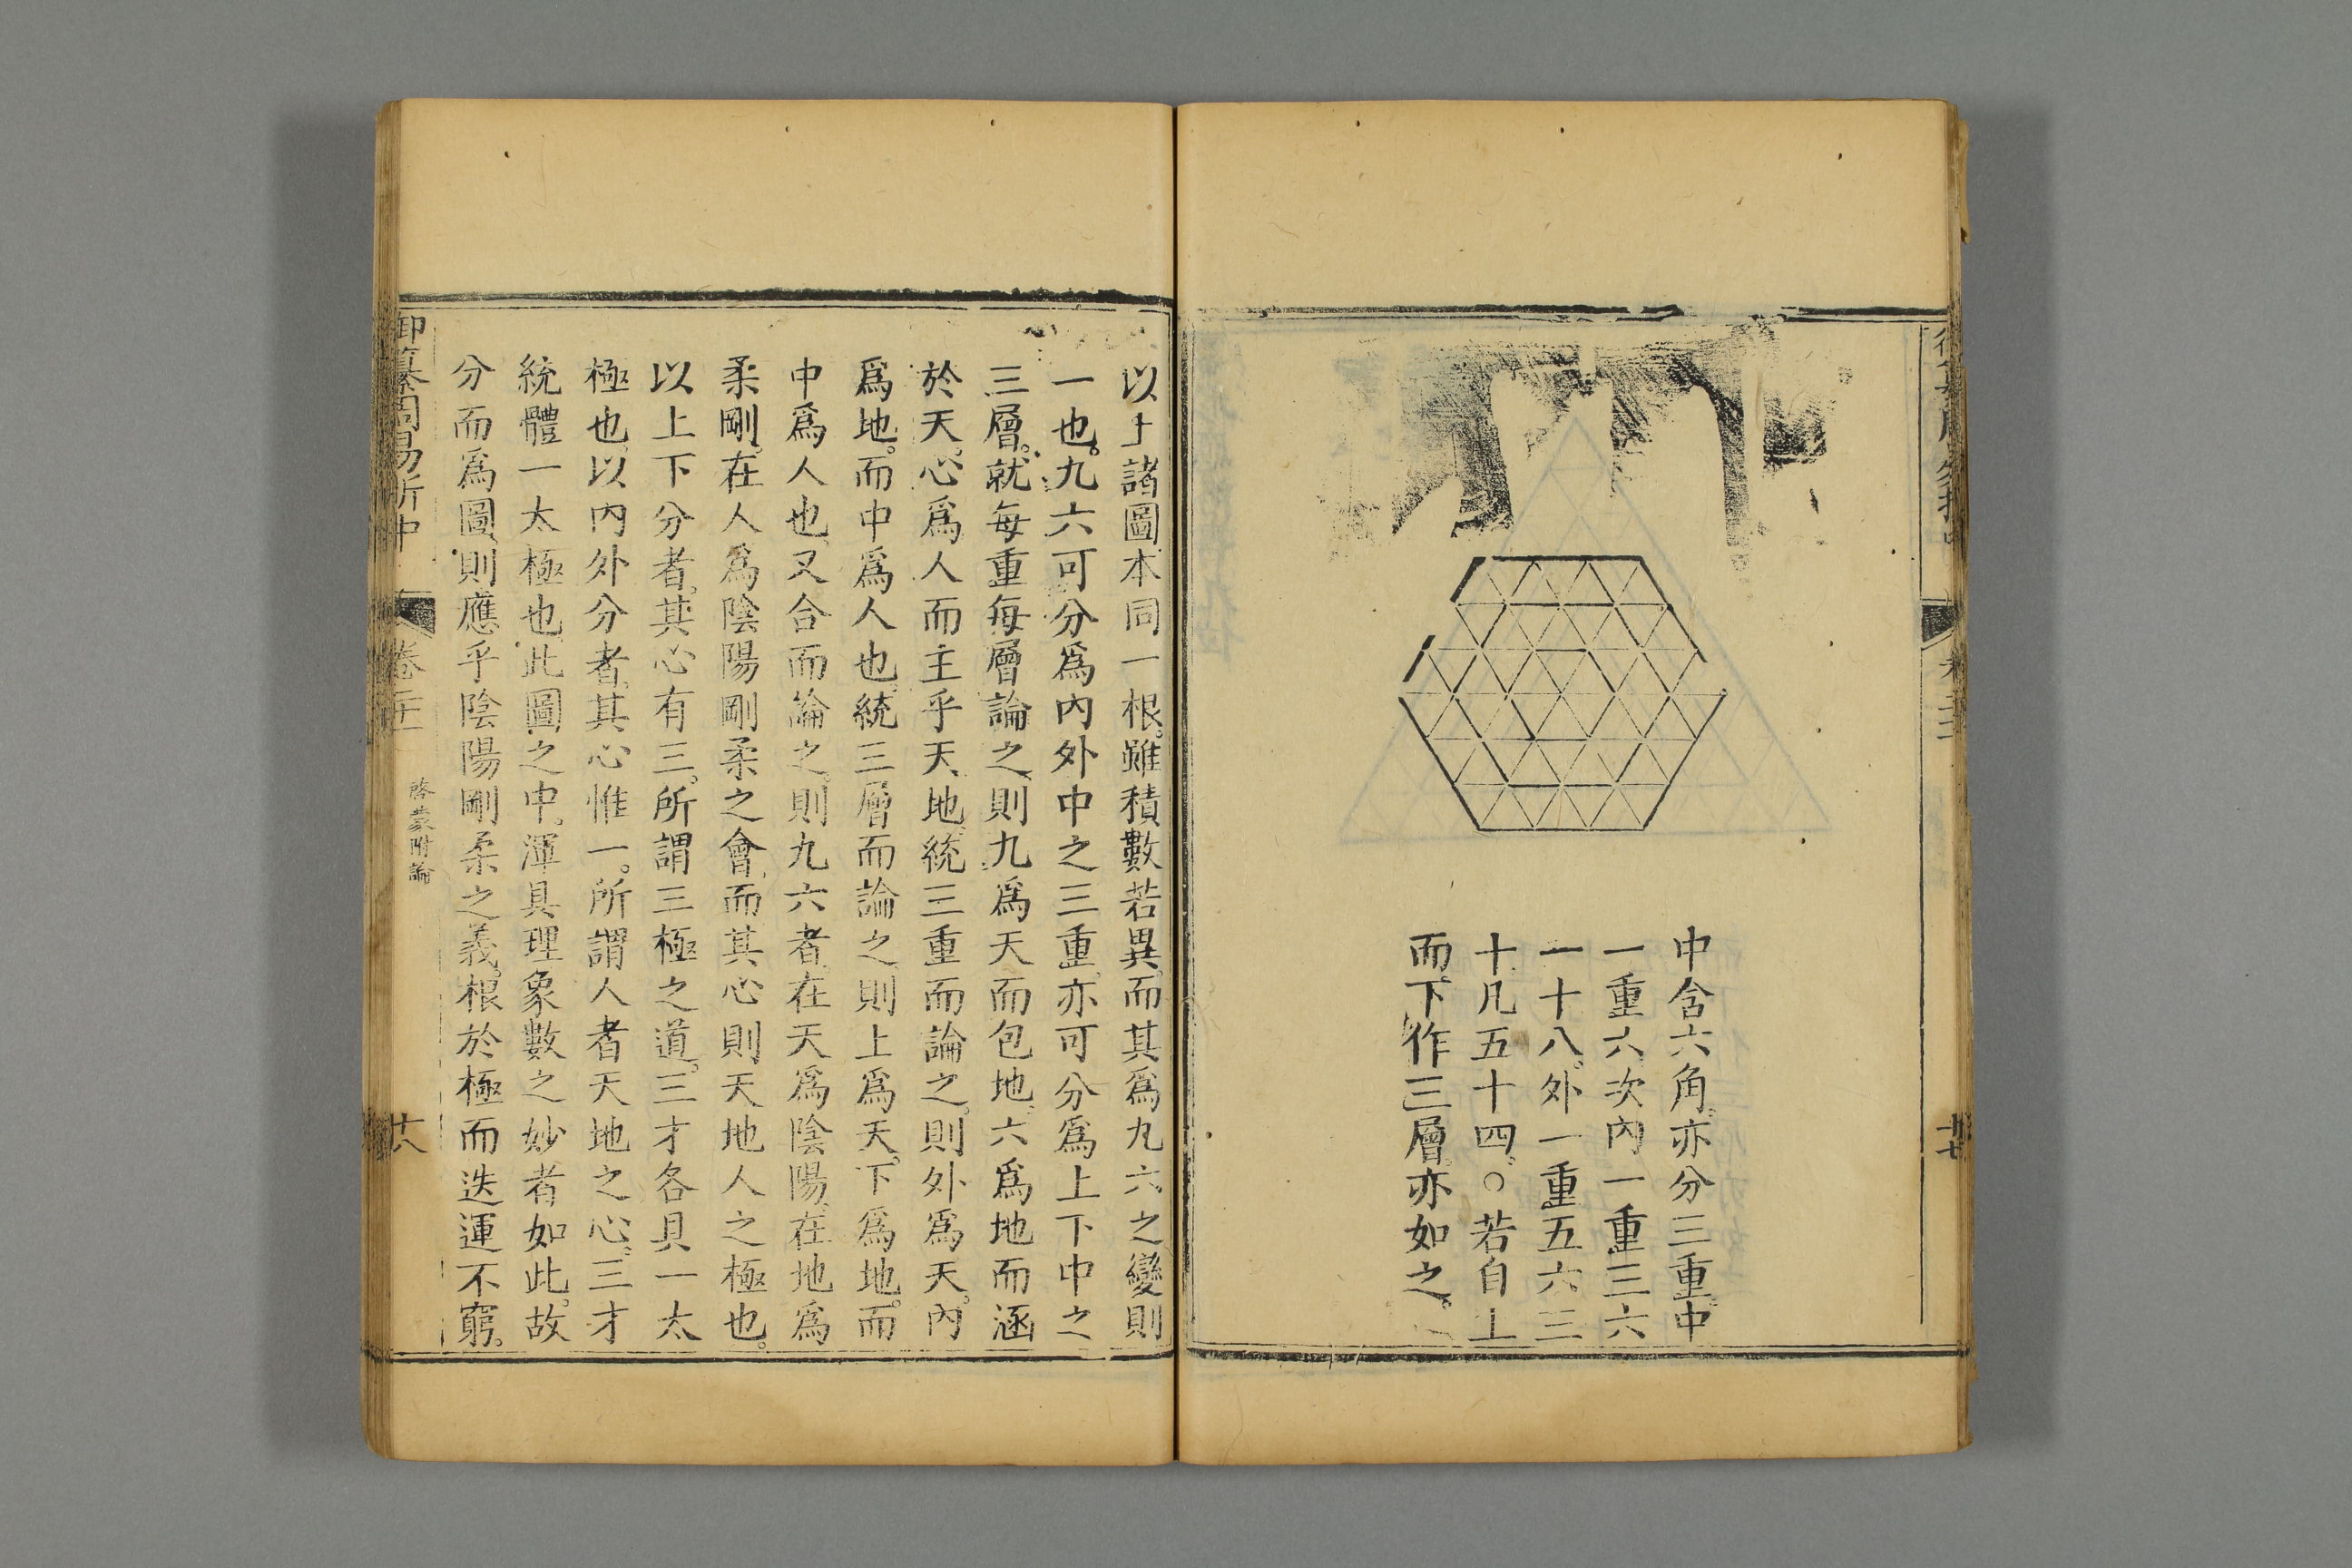 中含六角亦分三重中
一重六次內一重三六
一十八外一重五六三
十凡五十四○若自上
而下作三層亦如之
以上諸圖本同一根雖積數若異而其爲九六之變則
一也九六可分爲內外中之三重亦可分爲上下中之
三層就每重每層論之則九爲天而包地六爲地而涵
於天心爲人而主乎天地統三重而論之則外爲天內
爲地而中爲人也統三層而論之則上爲天下爲地而
中爲人也又合而論之則九六者在天爲陰陽在地爲
柔剛在人爲陰陽剛柔之會而其心則天地人之極也
以上下分者其心有三所謂三極之道三才各具一太
極也以內外分者其心惟一所謂人者天地之心三才
統體一太極也此圖之中渾具理象數之妙者如此故
分而爲圖則應乎陰陽剛柔之義根於極而迭運不窮
御纂周易折中
卷二十一
啓蒙附論
廿八